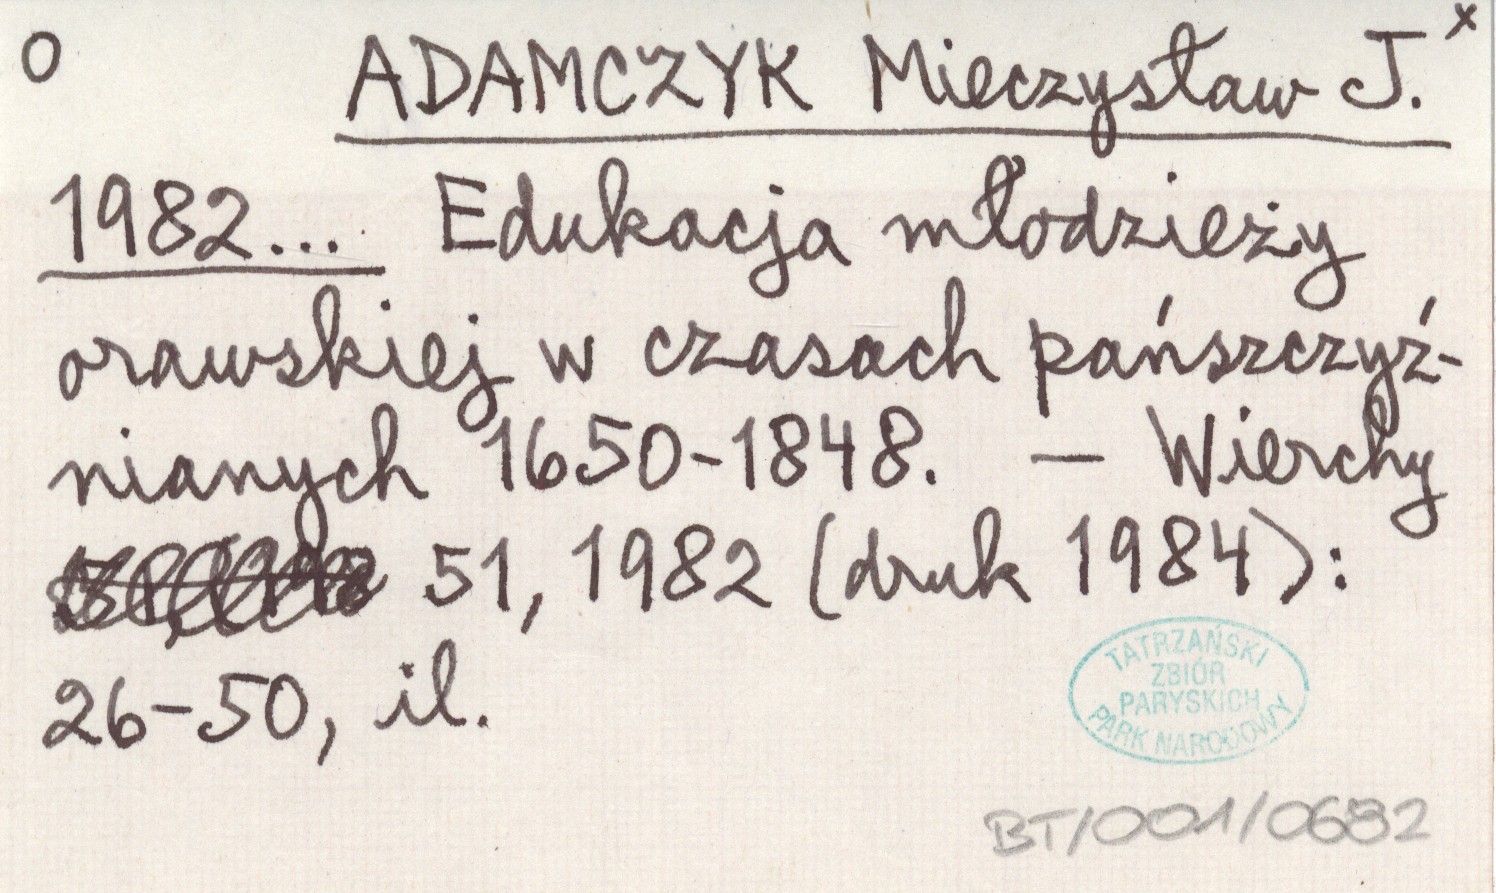 O ADAMCZYK Mieczysław J. x
1982... Edukacja młodzieży
orawskiej w czasach pańszczyź-
nianych 1650-1848. — Wierchy
51, 1982 (druk 1984):
26-50, il.
TATRZAŃSKI
ZBIÓR
PARYSKICH
PARK NARODOWY
BT/001/0682